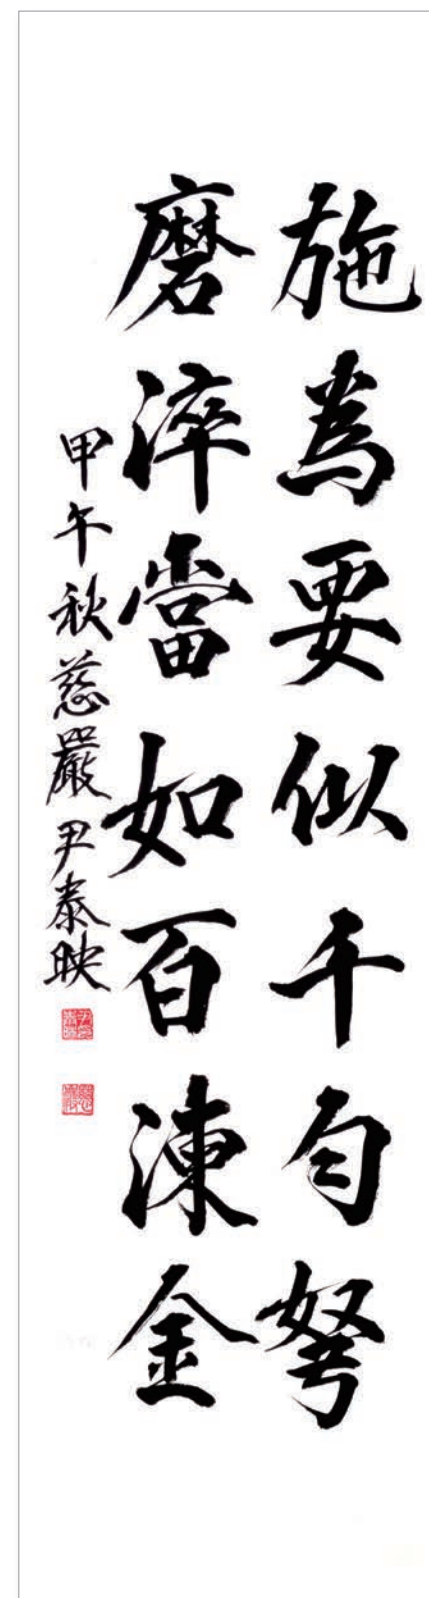 施為要似千匀弩
磨淬當如百湅金
甲午秋慈嚴尹泰映